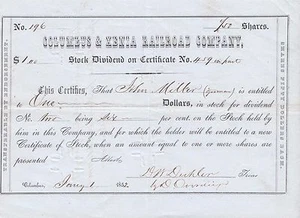 No. 196 1/50 Shares.
COLUMBUS & XENIA RAILROAD COMPANY,
$1.00 Stock Dividend on Certificate No. 419
This Certifies, That John Miller is entitled
to One Dollars, in stock for dividend
No. two being six per cent. on the Stock held by
him in this Company, and for which the holder will be entitled to a new
Certificate of Stock, when an amount equal to one or more shares are
presented Attest,
Columbus, Jany 1 1852.
TRANSFERABLE BY ENDORSEMENT.
SHARES FIFTY DOLLARS EACH